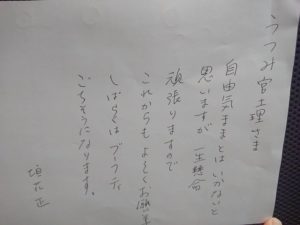 うつみ宮土理さま
自由気ままとはいかないと
思いますが 一生懸命
頑張りますので
これからもよろしくお願い
しばらくは ブーフティ
ごちそうになります。
垣花正